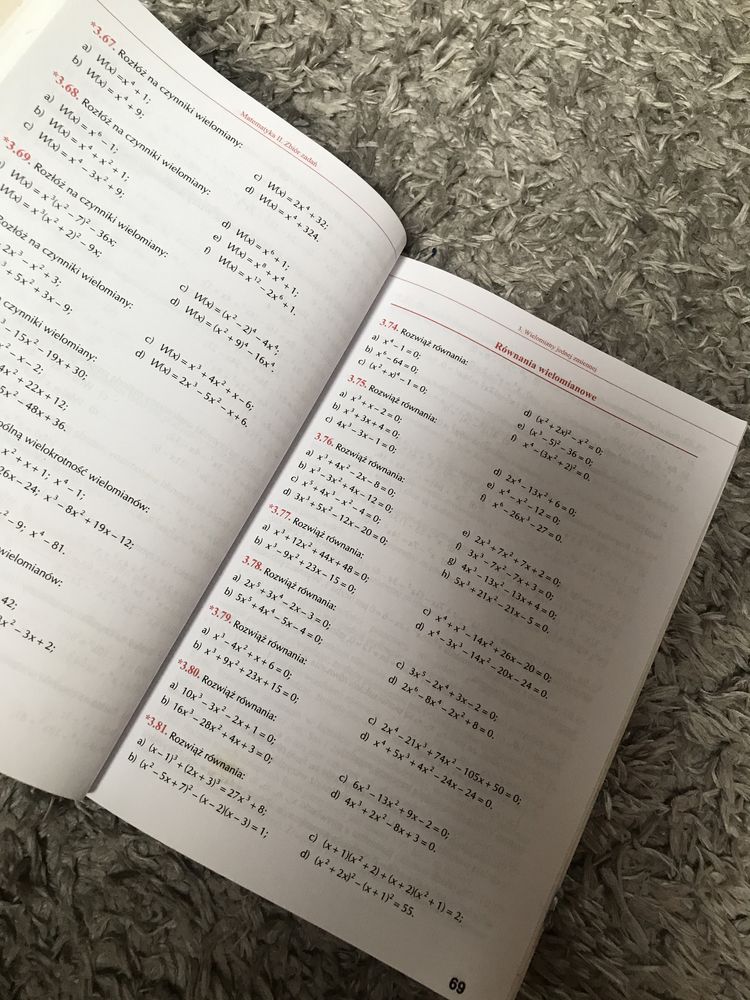 Matematyka II. Zbiór zadań
*3.67. Rozłóż na czynniki wielomiany:
a) W(x) = x⁴ + 1;
b) W(x) = x⁴ + 9;
c) W(x) = 2x⁴ + 32;
d) W(x) = x⁴ + 324.
*3.68. Rozłóż na czynniki wielomiany:
a) W(x) = x⁶ – 1;
b) W(x) = x⁴ + x² + 1;
c) W(x) = x⁴ – 3x² + 9;
d) W(x) = x⁶ + 1;
e) W(x) = x⁸ + x⁴ + 1;
f) W(x) = x¹² – 2x⁶ + 1.
*3.69. Rozłóż na czynniki wielomiany:
W(x) = x³(x² – 7)² – 36x;
W(x) = x³(x² + 2)² – 9x;
c) W(x) = (x² – 2)⁴ – 4x⁴;
d) W(x) = (x² + 9)⁴ – 16x⁴.
Rozłóż na czynniki wielomiany:
2x³ – x² + 3;
+ 5x² + 3x – 9;
c) W(x) = x³ + 4x² + x – 6;
d) W(x) = 2x³ – 5x² – x + 6.
czynniki wielomiany:
– 15x² – 19x + 30;
– x – 2;
4x² + 22x + 12;
5x² – 48x + 36.
wielokrotność wielomianów:
x² + x + 1; x⁴ – 1;
26x – 24; x³ – 8x² + 19x – 12;
– 9; x⁴ – 81.
wielomianów:
42;
x² – 3x + 2;
1. Wielomiany jednej zmiennej
Równania wielomianowe
3.74. Rozwiąż równania:
a) x⁴ – 1 = 0;
b) x⁶ – 64 = 0;
c) (x² + x)⁴ – 1 = 0;
d) (x² + 2x)² – x² = 0;
e) (x³ – 5)² – 36 = 0;
f) x⁴ – (3x² + 2)² = 0.
3.75. Rozwiąż równania:
a) x³ + x – 2 = 0;
b) x³ + 3x + 4 = 0;
c) 4x³ – 3x – 1 = 0;
d) 2x⁴ – 13x² + 6 = 0;
e) x⁴ – x² – 12 = 0;
f) x⁶ – 26x³ – 27 = 0.
3.76. Rozwiąż równania:
a) x³ + 4x² – 2x – 8 = 0;
b) x³ – 3x² + 4x – 12 = 0;
c) x⁵ + 4x³ – x² – 4 = 0;
d) 3x³ + 5x² – 12x – 20 = 0;
e) 2x³ + 7x² + 7x + 2 = 0;
f) 3x³ – 7x² – 7x + 3 = 0;
g) 4x³ – 13x² – 13x + 4 = 0;
h) 5x³ + 21x² – 21x – 5 = 0.
*3.77. Rozwiąż równania:
a) x³ + 12x² + 44x + 48 = 0;
b) x³ – 9x² + 23x – 15 = 0;
c) x⁴ + x³ – 14x² + 26x – 20 = 0;
d) x⁴ – 3x³ – 14x² – 20x – 24 = 0.
3.78. Rozwiąż równania:
a) 2x⁵ + 3x⁴ – 2x – 3 = 0;
b) 5x⁵ + 4x⁴ – 5x – 4 = 0;
c) 3x⁵ – 2x⁴ + 3x – 2 = 0;
d) 2x⁶ – 8x⁴ – 2x² + 8 = 0.
*3.79. Rozwiąż równania:
a) x³ – 4x² + x + 6 = 0;
b) x³ + 9x² + 23x + 15 = 0;
c) 2x⁴ – 21x³ + 74x² – 105x + 50 = 0;
d) x⁴ + 5x³ + 4x² – 24x – 24 = 0.
*3.80. Rozwiąż równania:
a) 10x³ – 3x² – 2x + 1 = 0;
b) 16x³ – 28x² + 4x + 3 = 0;
c) 6x³ – 13x² + 9x – 2 = 0;
d) 4x³ + 2x² – 8x + 3 = 0.
*3.81. Rozwiąż równania:
a) (x – 1)³ + (2x + 3)³ = 27x³ + 8;
b) (x² – 5x + 7)² – (x – 2)(x – 3) = 1;
c) (x + 1)(x² + 2) + (x + 2)(x² + 1) = 2;
d) (x² + 2x)² – (x + 1)² = 55.
69